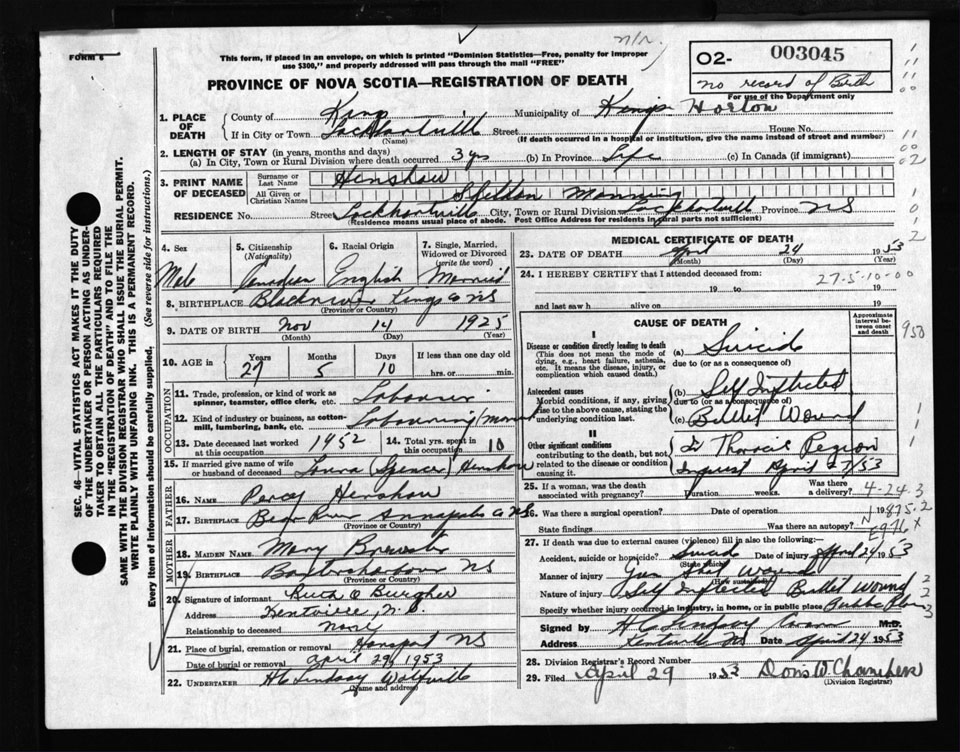 FORM 6
This form, if placed in an envelope, on which is printed "Dominion Statistics—Free, penalty for improper
use $300," and properly addressed will pass through the mail "FREE"
n/r.
02- 003045
no record of Birth
For use of the Department only
PROVINCE OF NOVA SCOTIA—REGISTRATION OF DEATH
1. PLACE OF DEATH
County of Kings Municipality of Kings Horton
If in City or Town Lockhartville Street House No.
(Name) (If death occurred in a hospital or institution, give the name instead of street and number)
2. LENGTH OF STAY (in years, months and days)
(a) In City, Town or Rural Division where death occurred 3 yrs (b) In Province Life (c) In Canada (if immigrant)
3. PRINT NAME OF DECEASED
Surname or Last Name Henshaw
All Given or Christian Names Sheldon Manning
RESIDENCE No. Street Lockhartville City, Town or Rural Division Lockhartville Province NS
(Residence means usual place of abode. Post Office Address for residents in rural parts not sufficient)
4. Sex 5. Citizenship (Nationality) 6. Racial Origin 7. Single, Married, Widowed or Divorced (write the word)
Male Canadian English Married
8. BIRTHPLACE Blackriver Kings Co NS
(Province or Country)
9. DATE OF BIRTH Nov 14 1925
(Month) (Day) (Year)
10. AGE in Years Months Days If less than one day old
27 5 10 hrs. or min.
OCCUPATION
11. Trade, profession, or kind of work as spinner, teamster, office clerk, etc. Labourer
12. Kind of industry or business, as cotton-mill, lumbering, bank, etc. Labouring
13. Date deceased last worked at this occupation 1952 14. Total yrs. spent in this occupation 10
15. If married give name of wife or husband of deceased Laura (Spencer) Henshaw
FATHER
16. NAME Percy Henshaw
17. BIRTHPLACE Bear River Annapolis Co NS
(Province or Country)
MOTHER
18. MAIDEN NAME Mary Brewster
19. BIRTHPLACE NS
(Province or Country)
20. Signature of informant Ruth O Burgher
Address Kentville, N.S.
Relationship to deceased none
21. Place of burial, cremation or removal Hantsport NS
Date of burial or removal April 29, 1953
22. UNDERTAKER H C Lindsay Wolfville
(Name and address)
MEDICAL CERTIFICATE OF DEATH
23. DATE OF DEATH April 24 1953
(Month) (Day)
24. I HEREBY CERTIFY that I attended deceased from:
27-5-10-00
19 to 19
and last saw h alive on 19
CAUSE OF DEATH
Approximate interval between onset and death
I
Disease or condition directly leading to death
(This does not mean the mode of dying, e.g., heart failure, asthenia, etc. It means the disease, injury, or complication which caused death.)
(a) Suicide
due to (or as a consequence of)
Antecedent causes
Morbid conditions, if any, giving rise to the above cause, stating the underlying condition last.
(b) Self Inflected
due to (or as a consequence of)
(c) Bullet Wound
II
Other significant conditions contributing to the death, but not related to the disease or condition causing it.
In Thoracic Region
Inquest April 27/53
950
25. If a woman, was the death associated with pregnancy? Duration weeks. Was there a delivery?
4-24-3
26. Was there a surgical operation? Date of operation 19
State findings Was there an autopsy?
N875-2
E976X
27. If death was due to external causes (violence) fill in also the following:
Accident, suicide or homicide? Suicide Date of injury April 24 1953
(State which)
Manner of injury Gun Shot Wound
(How sustained)
Nature of injury Self Inflected Bullet Wound
Specify whether injury occurred in industry, in home, or in public place Public Place
Signed by H C Lindsay M.D.
Address Kentville NS Date April 24 1953
28. Division Registrar's Record Number
29. Filed April 29 1953 Doris W. Chambers
(Division Registrar)
SEC. 46—VITAL STATISTICS ACT MAKES IT THE DUTY
OF THE UNDERTAKER OR PERSON ACTING AS UNDER-
TAKER TO OBTAIN ALL THE PARTICULARS REQUIRED
IN THE "REGISTRATION OF DEATH" AND TO FILE THE
SAME WITH THE DIVISION REGISTRAR WHO SHALL ISSUE THE BURIAL PERMIT.
WRITE PLAINLY WITH UNFADING INK. THIS IS A PERMANENT RECORD.
Every item of information should be carefully supplied. (See reverse side for instructions.)